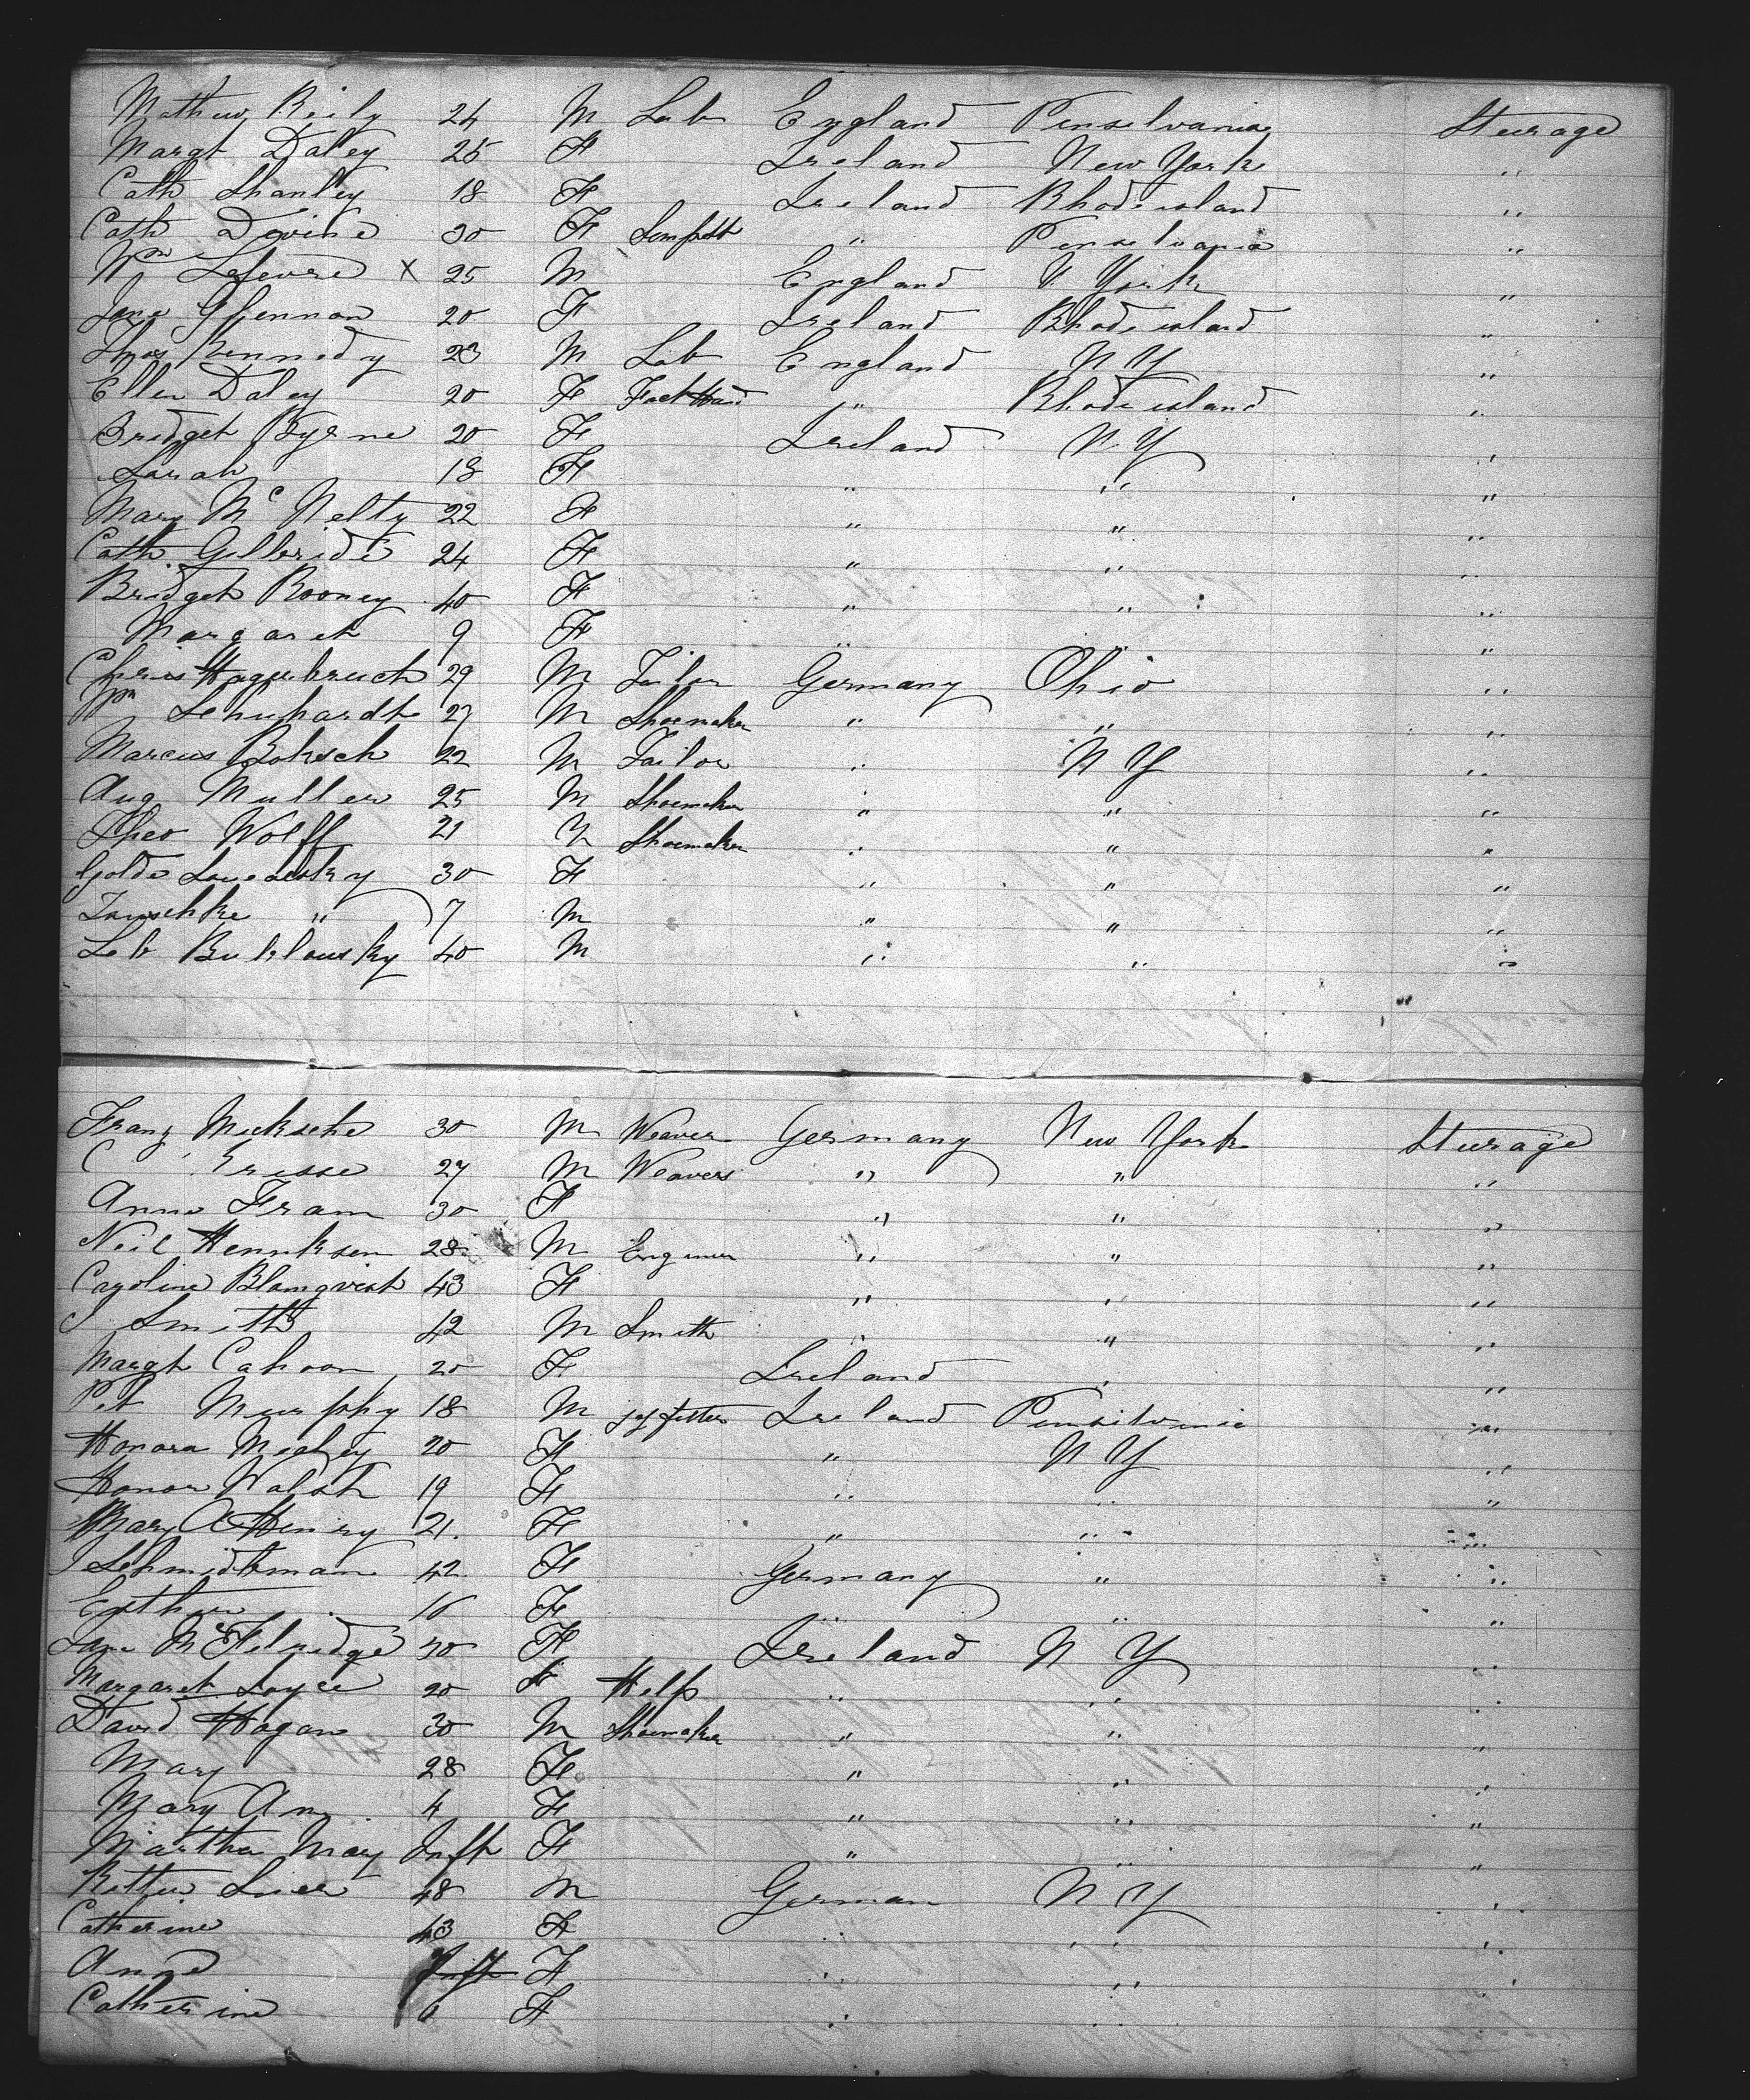 Mathew Reily 24 M Lab England Penselvania Sturage
Margt Daley 25 F Ireland New York "
Cath Shanley 18 F Ireland Rhode island "
Cath Devine 30 F " Penselvania "
Wm Lefevre X 25 M England N York "
Jane Glennon 20 F Ireland Rhode island "
Thos Kennedy 23 M Lab England N Y "
Ellen Daley 20 F Fact Hand " Rhode island "
Bridget Byrne 20 F Ireland N.Y "
Sarah 18 F " " "
Mary Mc Nelty 22 F " " "
Cath Gillbride 24 F " " "
Bridget Rooney 40 F " " "
Margaret 9 F " " "
29 M Tailor Germany Ohio "
Wm Lenhardt 27 M Shoemaker " " "
Marcus 22 M Tailor " N Y "
Aug Muller 25 M Shoemaker " " "
Theo Wolff 21 M Shoemaker " " "
Golde 30 F " " "
" 7 M " " "
Leb 40 M " " "
Franz 30 M Weaver Germany New York Sturage
27 M Weavers " " "
Anna Fram 30 F " " "
Neil Henriksen 28 M Engineer " " "
Caroline Blomqvist 43 F " " "
J Smith 42 M Smith " " "
Margt Cahoon 20 F Ireland " "
Pat Murphy 18 M Ireland "
Honora 20 F " N Y "
Honor Walsh 19 F " " "
Mary A Henry 21. F " " "
J Schmidtman 42 F Germany " "
Esther 16 F " " "
Jane 30 F Ireland N Y "
Margaret Joyce 20 F Help " " "
David Hogan 30 M Shoemaker " " "
Mary 28 F " " "
Mary Ann 4 F " " "
Martha Mary Inft F " " "
48 M German N Y "
Catherine 43 F " " "
Anne F " " "
Catherine 6 F " " "